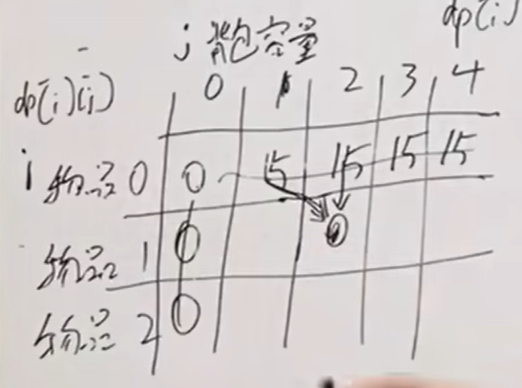 dp(i)
j 背包容量
dp(i)(j) 0 1 2 3 4
i 物品 0 0 15 15 15 15
物品 1 0 0
物品 2 0